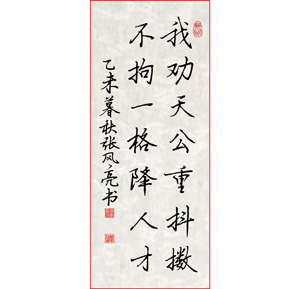 我劝天公重抖擞
不拘一格降人才
乙未暮秋张风亮书